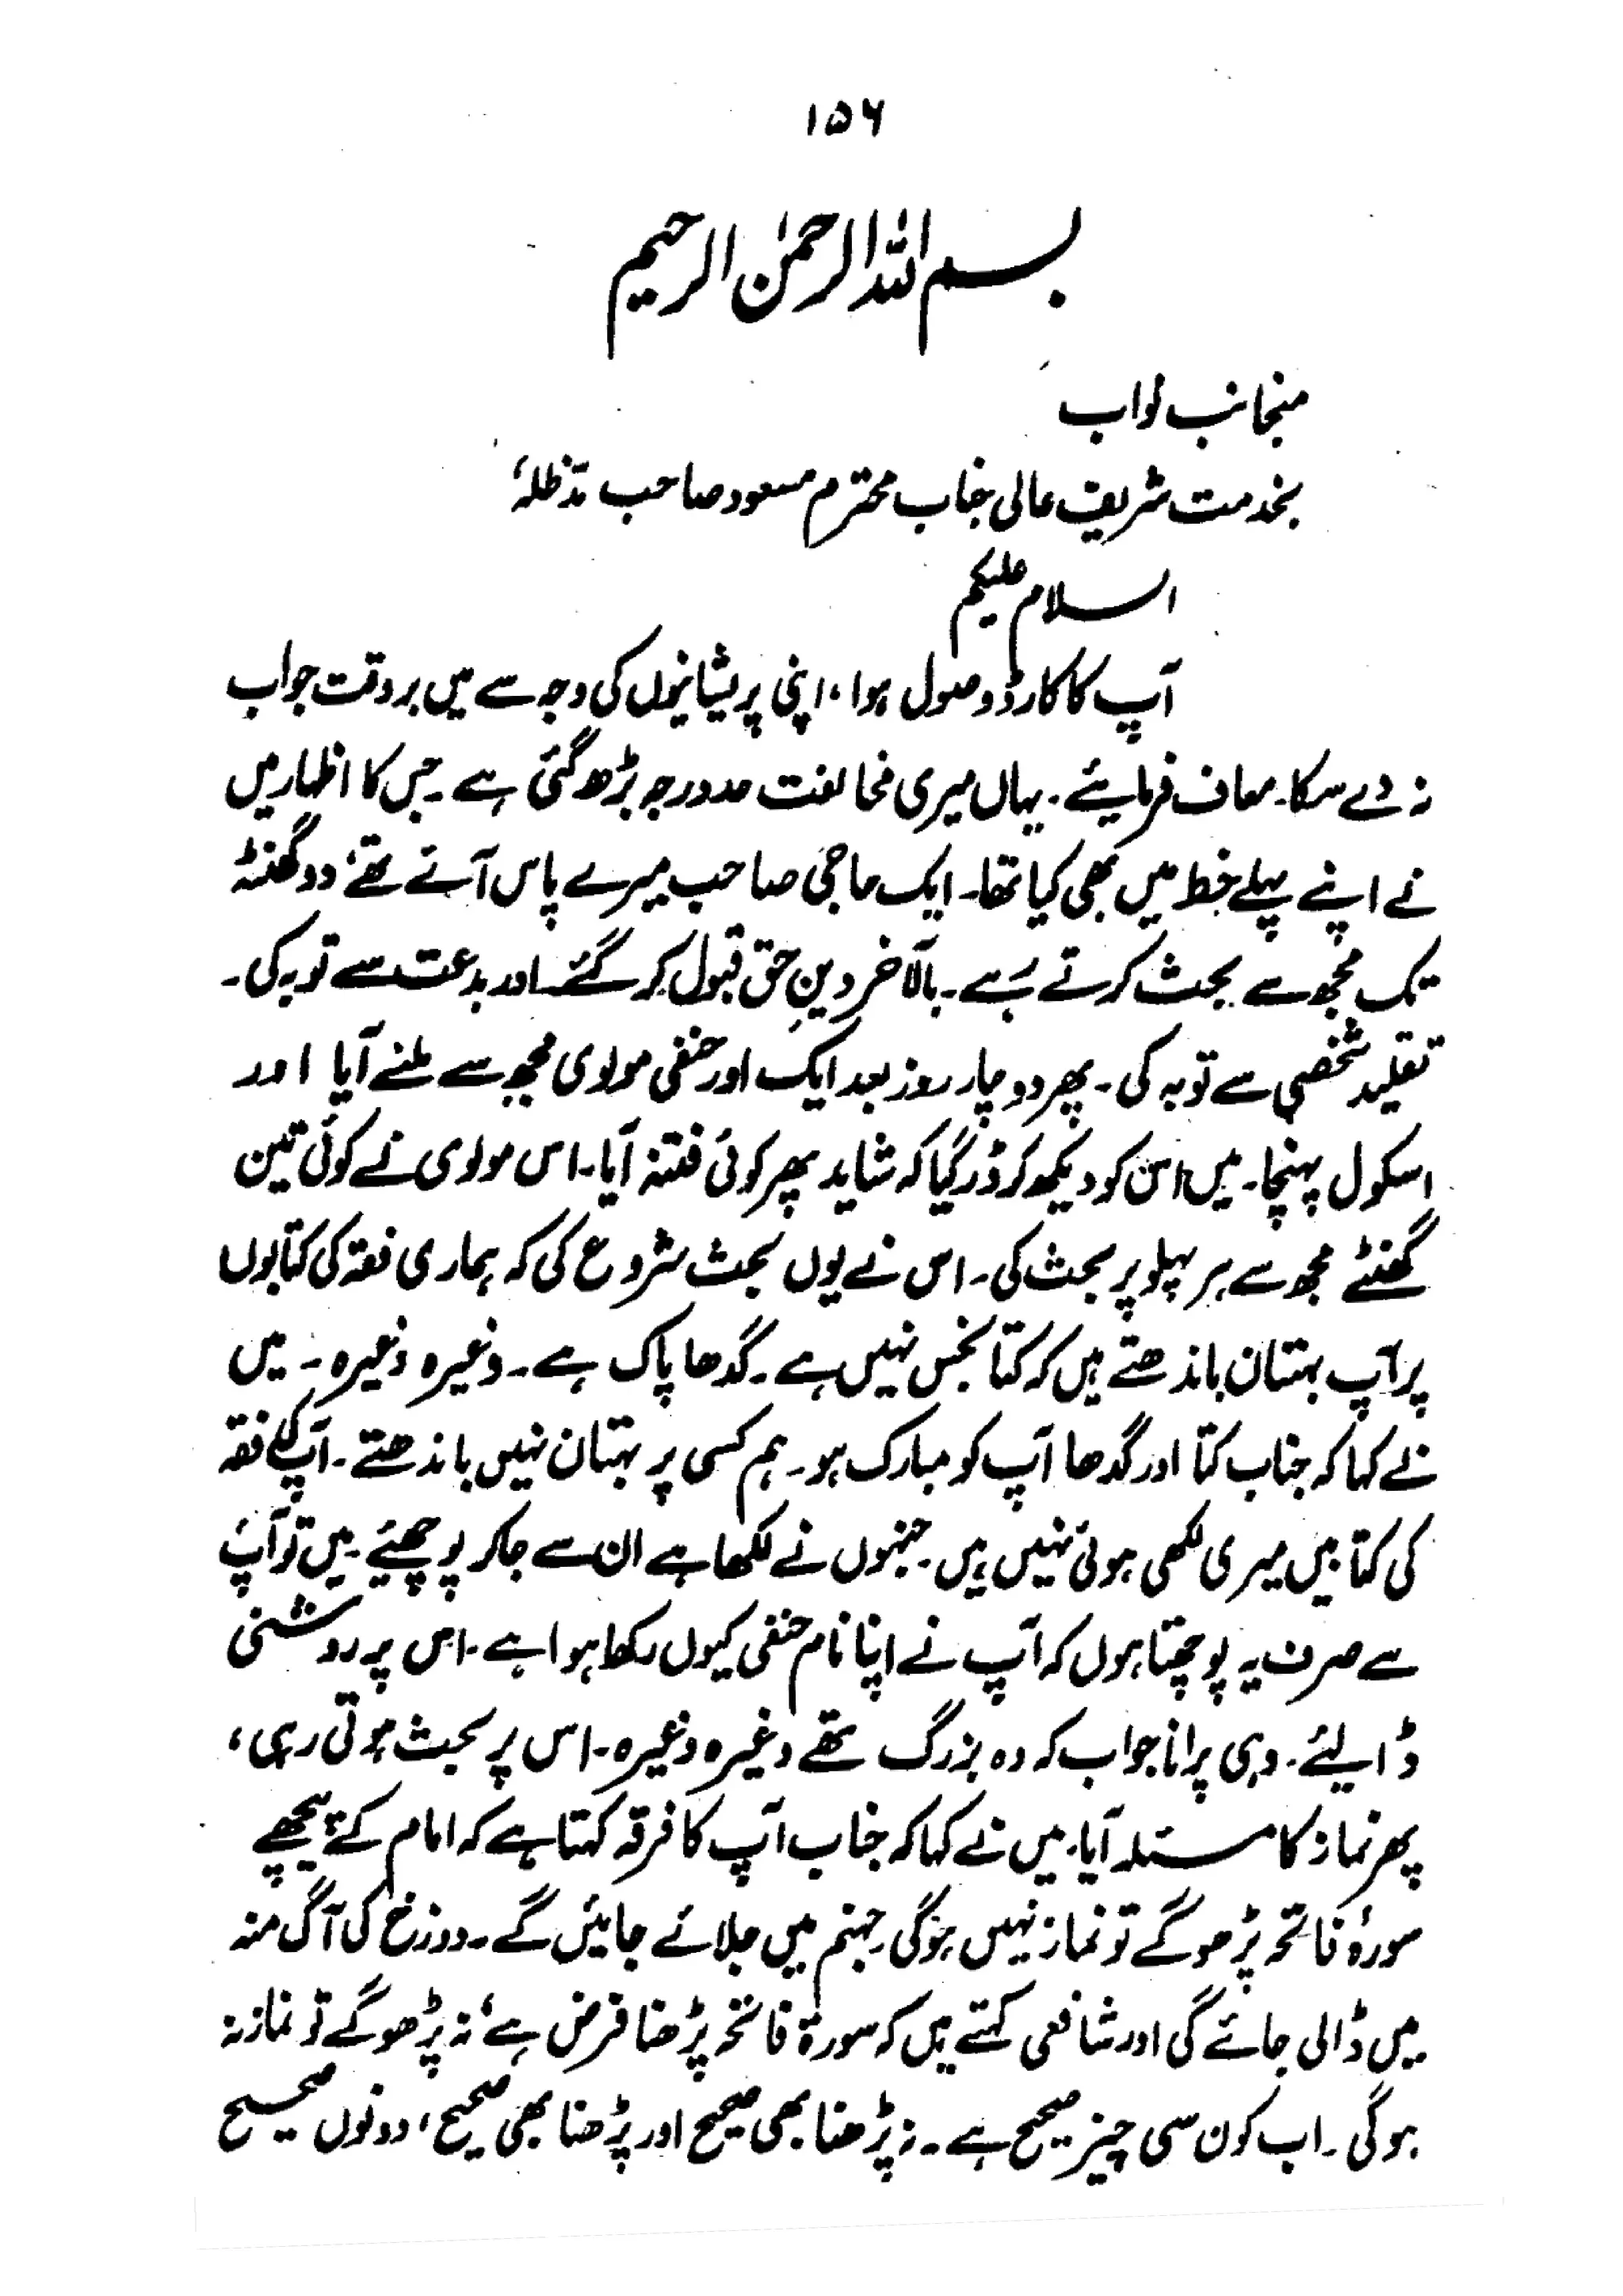 ۱۵۶
بسم اللہ الرحمٰن الرحیم
منجانب نواب
بخدمت شریف عالی جناب محترم مسعود صاحب مدظلہٗ
السلام علیکم
آپ کا کارڈ وصول ہوا، اپنی پریشانیوں کی وجہ سے میں بروقت جواب
نہ دے سکا۔ معاف فرمائیے۔ یہاں میری مخالفت حد درجہ بڑھ گئی ہے۔ جس کا اظہار میں
نے اپنے پہلے خط میں بھی کیا تھا۔ ایک حاجی صاحب میرے پاس آئے تھے، دو گھنٹہ
تک مجھ سے بحث کرتے رہے۔ بالآخر دینِ حق قبول کر گئے اور بدعت سے توبہ کی۔
تقلید شخصی سے توبہ کی۔ پھر دو چار روز بعد ایک اور حنفی مولوی مجھ سے ملنے آیا اور
اسکول پہنچا۔ میں اس کو دیکھ کر ڈر گیا کہ شاید پھر کوئی فتنہ آیا۔ اس مولوی نے کوئی تین
گھنٹے مجھ سے ہر پہلو پر بحث کی۔ اس نے یوں بحث شروع کی کہ ہماری فقہ کی کتابوں
پر آپ بہتان باندھتے ہیں کہ کتا نجس نہیں ہے۔ گدھا پاک ہے۔ وغیرہ وغیرہ۔ میں
نے کہا کہ جناب کتا اور گدھا آپ کو مبارک ہو۔ ہم کسی پر بہتان نہیں باندھتے۔ آپ کی فقہ
کی کتابیں میری لکھی ہوئی نہیں ہیں۔ جنہوں نے لکھا ہے ان سے جا کر پوچھیئے۔ میں تو آپ
سے صرف یہ پوچھتا ہوں کہ آپ نے اپنا نام حنفی کیوں رکھا ہوا ہے۔ اس پر روشنی
ڈالیئے۔ وہی پرانا جواب کہ وہ بزرگ تھے وغیرہ وغیرہ۔ اس پر بحث ہوتی رہی،
پھر نماز کا مسئلہ آیا۔ میں نے کہا کہ جناب آپ کا فرقہ کہتا ہے کہ امام کے پیچھے
سورۂ فاتحہ پڑھو گے تو نماز نہیں ہوگی۔ جہنم میں جلائے جائیں گے۔ دوزخ کی آگ منہ
میں ڈالی جائے گی اور شافعی کہتے ہیں کہ سورۃ فاتحہ پڑھنا فرض ہے، نہ پڑھو گے تو نماز نہ
ہوگی۔ اب کون سی چیز صحیح ہے۔ نہ پڑھنا بھی صحیح اور پڑھنا بھی صحیح، دونوں صحیح